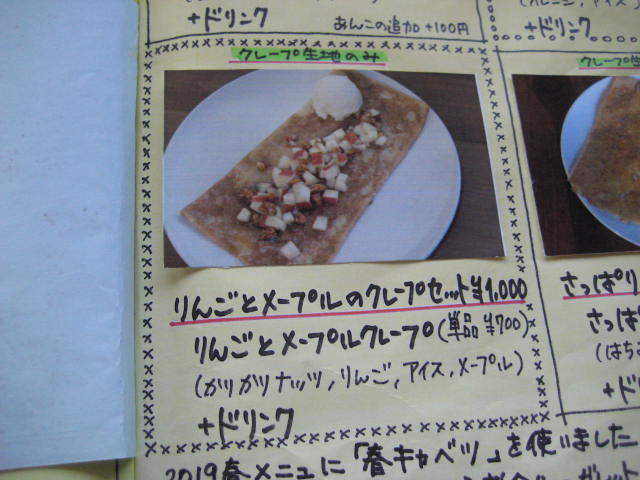 (カレージ, アイス
+ドリンク
あんこの追加+100円
+ドリンク
クレープ生地のみ
クレープ生
りんごとメープルのクレープセット¥1,000
りんごとメープルクレープ(単品¥700)
(カリカリナッツ, りんご, アイス, メープル)
+ドリンク
さっぱり
さっぱ
(はち
+ド
2019春メニューに「春キャベツ」を使いました